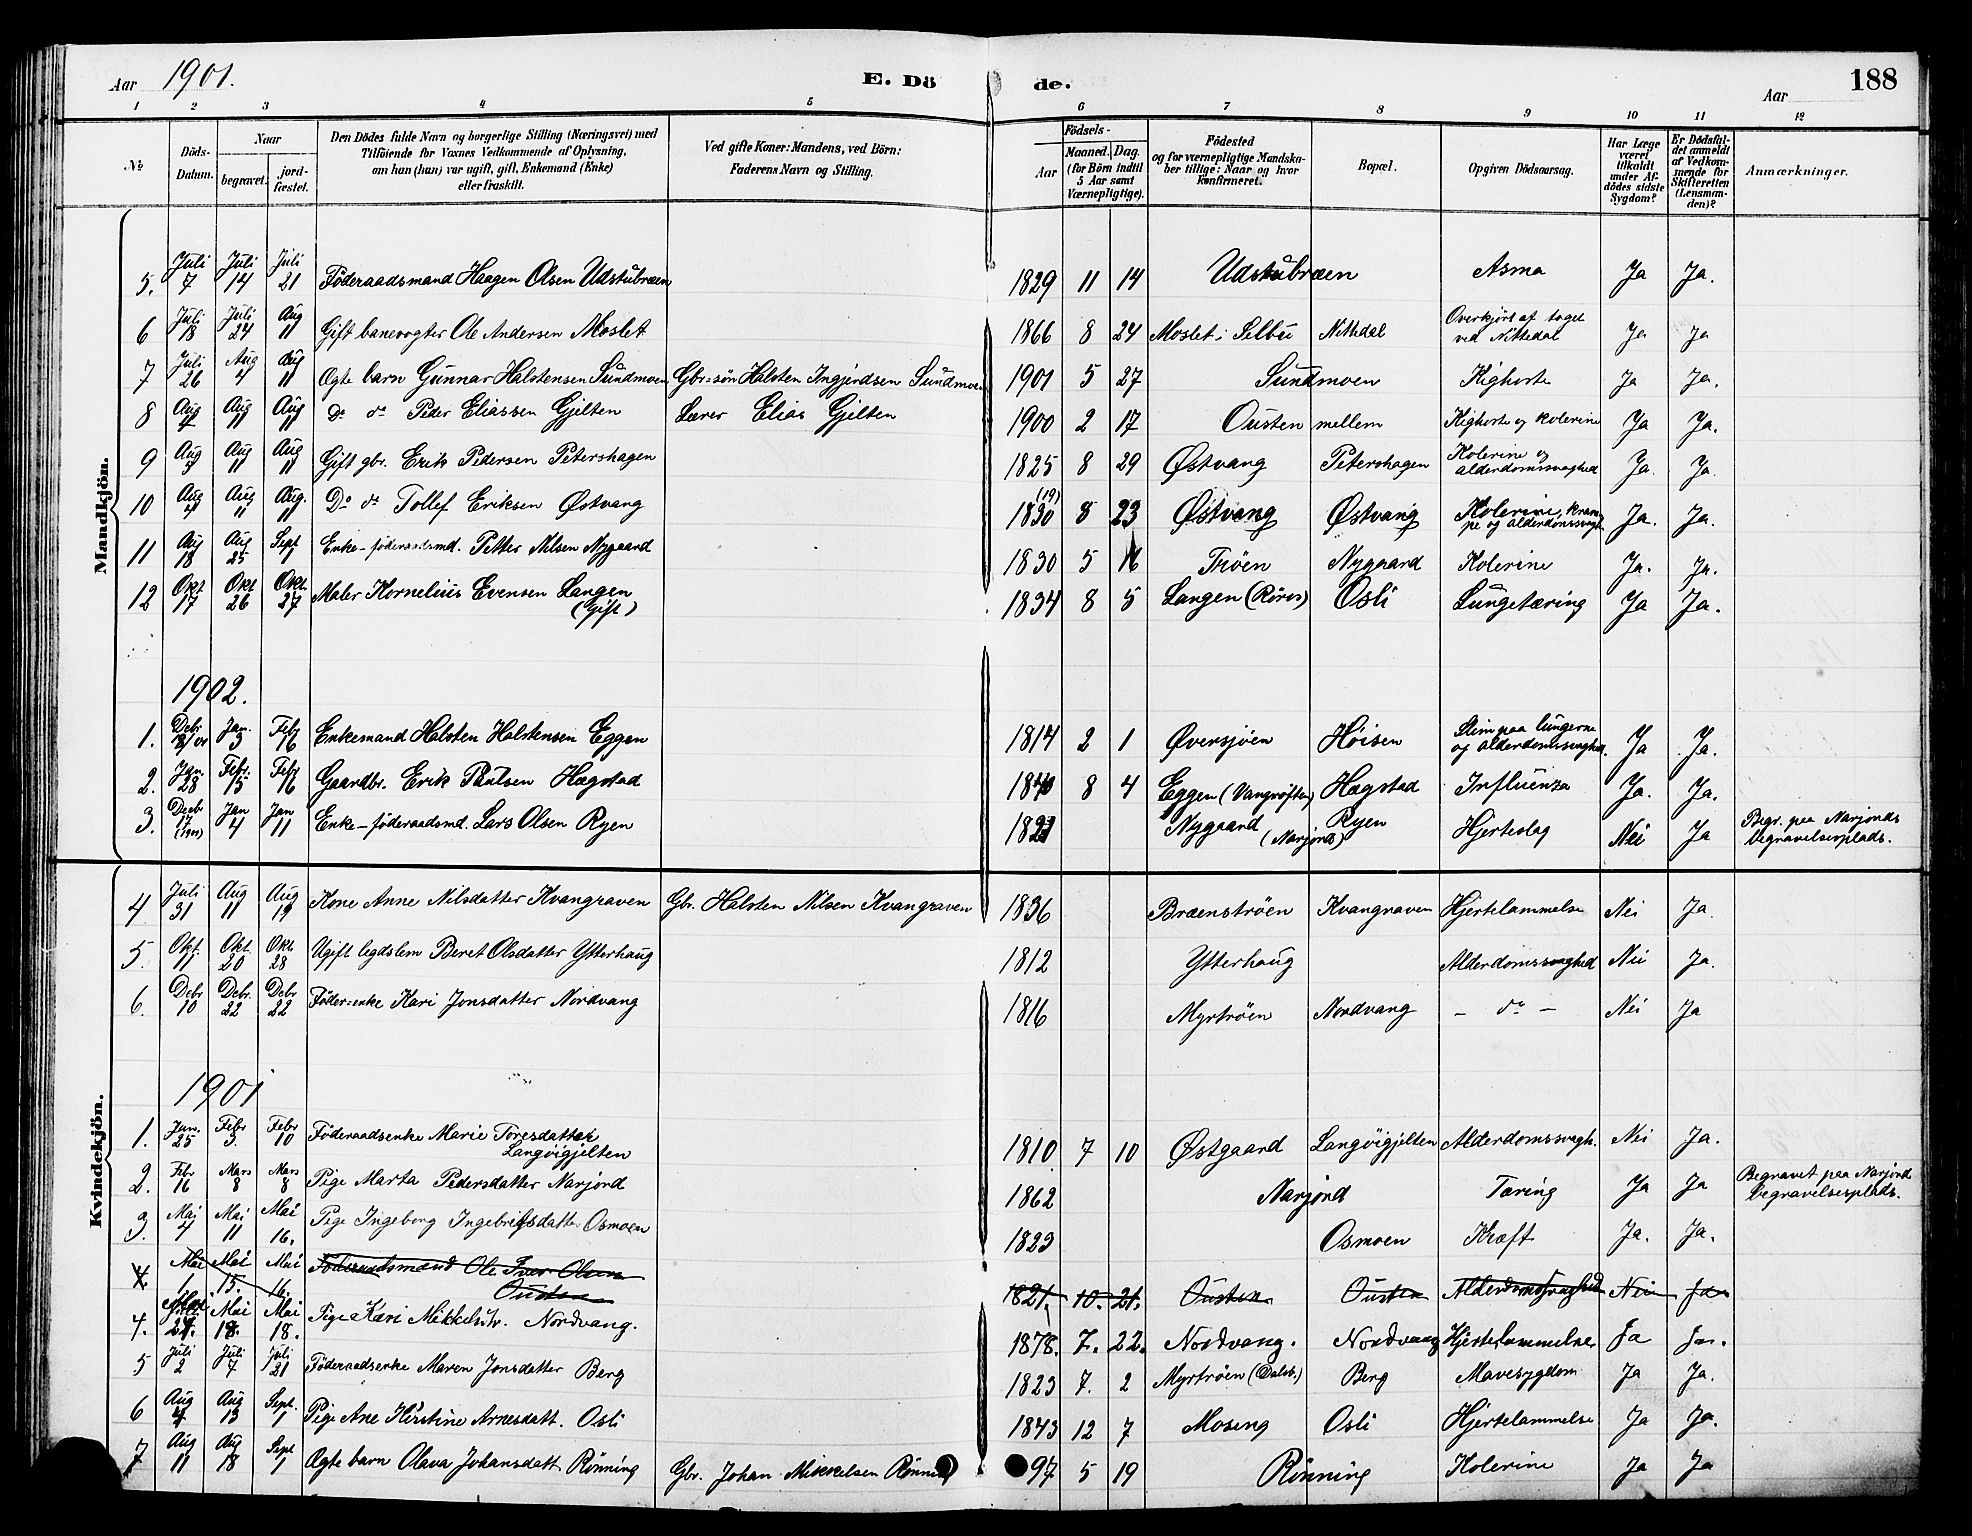 Aar 1901. E. Dö de. Aar 188
1 2 3 4 5 6 7 8 9 10 11 12
№ Döds-Datum. Naar begravet. jord-fæstet. Den Dödes fulde Navn og borgerlige Stilling (Næringsvei) med Tilföiende for Voxnes Vedkommende af Oplysning, om han (hun) var ugift, gift, Enkemand (Enke) eller fraskilt. Ved gifte Koner: Mandens, ved Börn: Faderens Navn og Stilling. Födsels- Aar Maaned. Dag. (for Börn indtil 5 Aar samt Værnepligtige). Födested og for værnepligtige Mandskaber tillige: Naar og hvor konfirmeret. Bopæl. Opgiven Dödsaarsag. Har Læge været tilkaldt under Afdödes sidste Sygdom? Er Dödsfaldet anmeldt af Vedkommende for Skifteretten (Lensmanden)? Anmærkninger.
Mandkjön.
5. Juli 7 Juli 14 Juli 21 Föderaadsmand Haagen Olsen Udstubræen 1829 11 14 Udstubræen Asma Ja Ja.
6 Juli 18 Juli 24 Aug 11 Gift banevogter Ole Andersen Moslet 1866 8 24 Moslet i Selbu Nittedal Overkjört af toget ved Nittedal Ja Ja
7 Juli 26 Aug 4 Aug 11 Ægte barn Gunnar Halstensen Sundmoen Gbr.sön Halsten Ingjerdsen Sundmoen 1901 5 27 Sundmoen Kighoste Ja Ja.
8 Aug Aug 11 Aug 11 Do do Peder Eliassen Gjelten Lærer Elias Gjelten 1900 2 17 Ousten mellem Kighoste og kolerine Ja Ja.
9 Aug Aug 11 Aug 11 Gift gbr. Erik Pedersen Petershagen 1825 8 29 Østvang Petershagen Kolerine og alderdomssvaghed Ja. Ja.
10 Aug 4 Aug 11 Aug. 11 Do do Tollef Eriksen Østvang (19) 1830 8 23 Østvang Østvang Kolerine, krampe og alderdomssvagh. Ja. Ja.
11 Aug 18 Aug 25 Sept 1 Enke-föderaadsmd. Petter Nilsen Nygaard 1830 5 16 Tröen Nygaard Kolerine Ja. Ja.
12 Okt 17 Okt 26 Okt. 27 Maler Kornelius Evensen Langen (Gift) 1834 8 5 Langen (Röros) Osli Lungetæring Ja Ja.
1902.
1. Debr 18/01 Jan. 3 Feb 16 Enkemand Halsten Halstensen Eggen 1814 2 1 Øversjöen Höisen Slim paa lungerne og alderdomssvaghed. Ja Ja.
2. Jan. 28 Febr. 15 Feb 16 Gaardbr. Erik Paulsen Hægstad 1840 8 4 Eggen (Vangröften) Hægstad Influenza Ja. Ja.
3. Decbr 17 Jan 4 Jan 11 Enke-föderaadsmd. Lars Olsen Ryen Nygaard (Narjord) Ryen Hjerteslag Nei Ja Begr. paa Narjords begravelsesplads.
Kvindekjön.
4 Juli 31 Aug 11 Aug 19 Kone Anne Nilsdatter Kvangraven Gbr. Halsten Nilsen Kvangraven 1836 Brænströen Kvangraven Hjertelammelse Nei Ja.
5. Okt. 11 Okt. 20 Okt. 28 Ugift legdslem Beret Olsdatter Ytterhaug 1812 Ytterhaug Alderdomssvaghed Nei Ja.
6. Debr 10 Debr. 22 Debr 22 Föder.enke Kari Jonsdatter Nordvang 1816 Myrtröen Nordvang – do – Nei Ja
1901
1. Jan. 25 Febr 3. Febr 10 Föderaadsenke Marie Toresdatter Langvigjelten 1810 7 10 Østgaard Langvigjelten Alderdomssvagh. Nei Ja.
2. Febr 16 Mars 8 Mars 8 Pige Marta Pedersdatter Narjord 1862 Narjord Tæring Ja Ja Begravet paa Narjord begravelsesplads.
3. Mai 4 Mai 11 Mai 16. Pige Ingeborg Ingebretsdatter Osmoen 1823 Osmoen Kræft Ja. Ja.
4. Mai 1. Mai 15. Mai 16. Föderaadsmand Ole Iver Olsen Ousten 1821. 10. 21. Ousten Ousten Alderdomssvaghed Nei Ja
4. Mai 18. Mai 18. Pige Kari Mikkelsdtr. Nordvang. 1878. 7. 22. Nordvang. Nordvang Hjertelammelse Ja Ja.
5 Juli 2 Juli 7 Juli 21 Föderaadsenke Maren Jonsdatter Berg 1823 7. 2 Myrtröen (Dalsb.) Berg Mavesygdom Ja Ja.
6 Aug 4 Aug 13 Sept. 1 Pige Ane Kirstine Arnesdatt. Osli 1843 12 7 Moseng Osli Hjertelammelse Ja Ja.
7 Aug 11 Aug 18 Sept 1 Ægte barn Olava Johansdatt. Rönning Gbr. Johan Mikkelsen Rönning 97 5 19 Rönning Kolerine Ja Ja